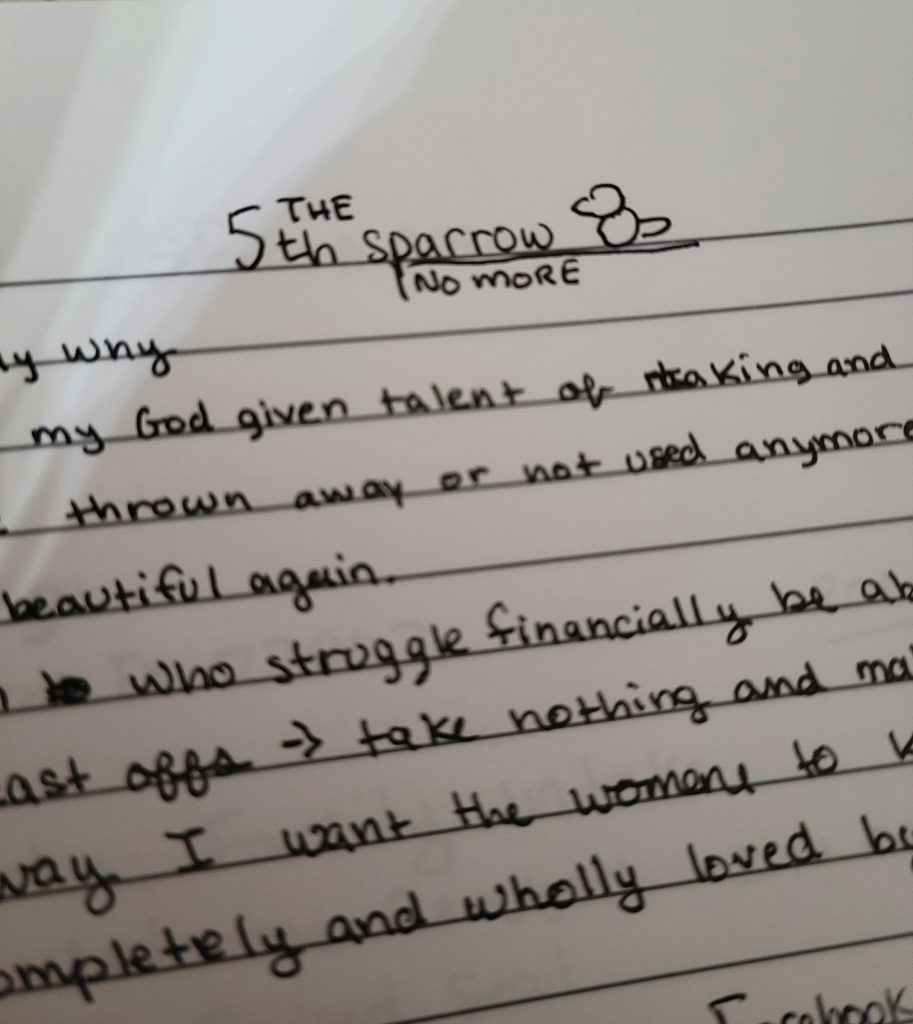 THE
5th sparrow
NO MORE
my why
my God given talent of taking and
thrown away or not used anymore
beautiful again.
who struggle financially be ab
cast offs → take nothing and ma
way I want the womens to k
ompletely and wholly loved by
Facebook